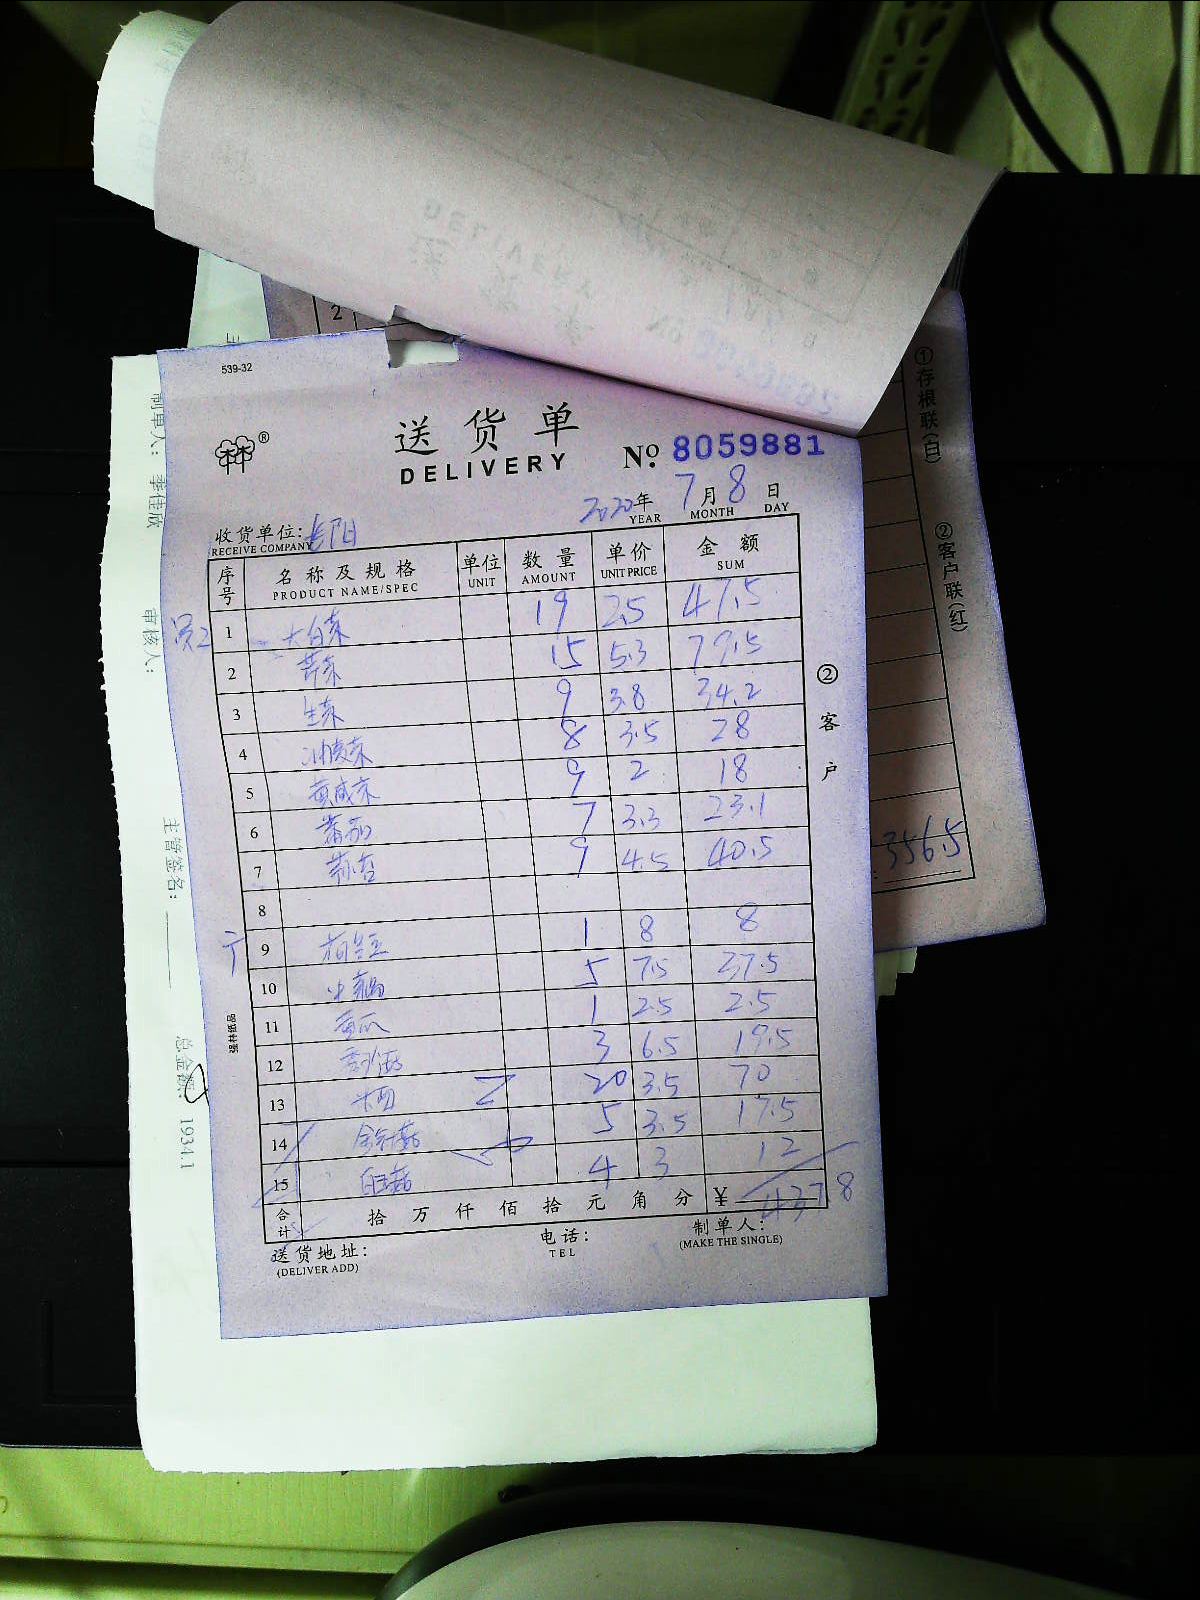 2
①存根联(白)
②客户联(红)
356.5
制单人: 李佳欣
审核人:
主管签名:
总金额: 1934.1
539-32
送货单
DELIVERY
№ 8059881
2020年 7月 8日
YEAR MONTH DAY
收货单位:
RECEIVE COMPANY
序号 名称及规格 单位 数量 单价 金额
PRODUCT NAME/SPEC UNIT AMOUNT UNIT PRICE SUM
1 大白菜 19 2.5 47.5
2 芹菜 15 5.3 79.5
3 生菜 9 3.8 34.2
4 8 3.5 28
5 9 2 18
6 番茄 7 3.3 23.1
7 9 4.5 40.5
8
9 1 8 8
10 5 7.5 37.5
11 黄瓜 1 2.5 2.5
12 3 6.5 19.5
13 20 3.5 70
14 金针菇 5 3.5 17.5
15 白玉菇 4 3 12
合计 拾 万 仟 佰 拾 元 角 分 ¥ 437.8
②客户
送货地址:
(DELIVER ADD)
电话:
TEL
制单人:
(MAKE THE SINGLE)